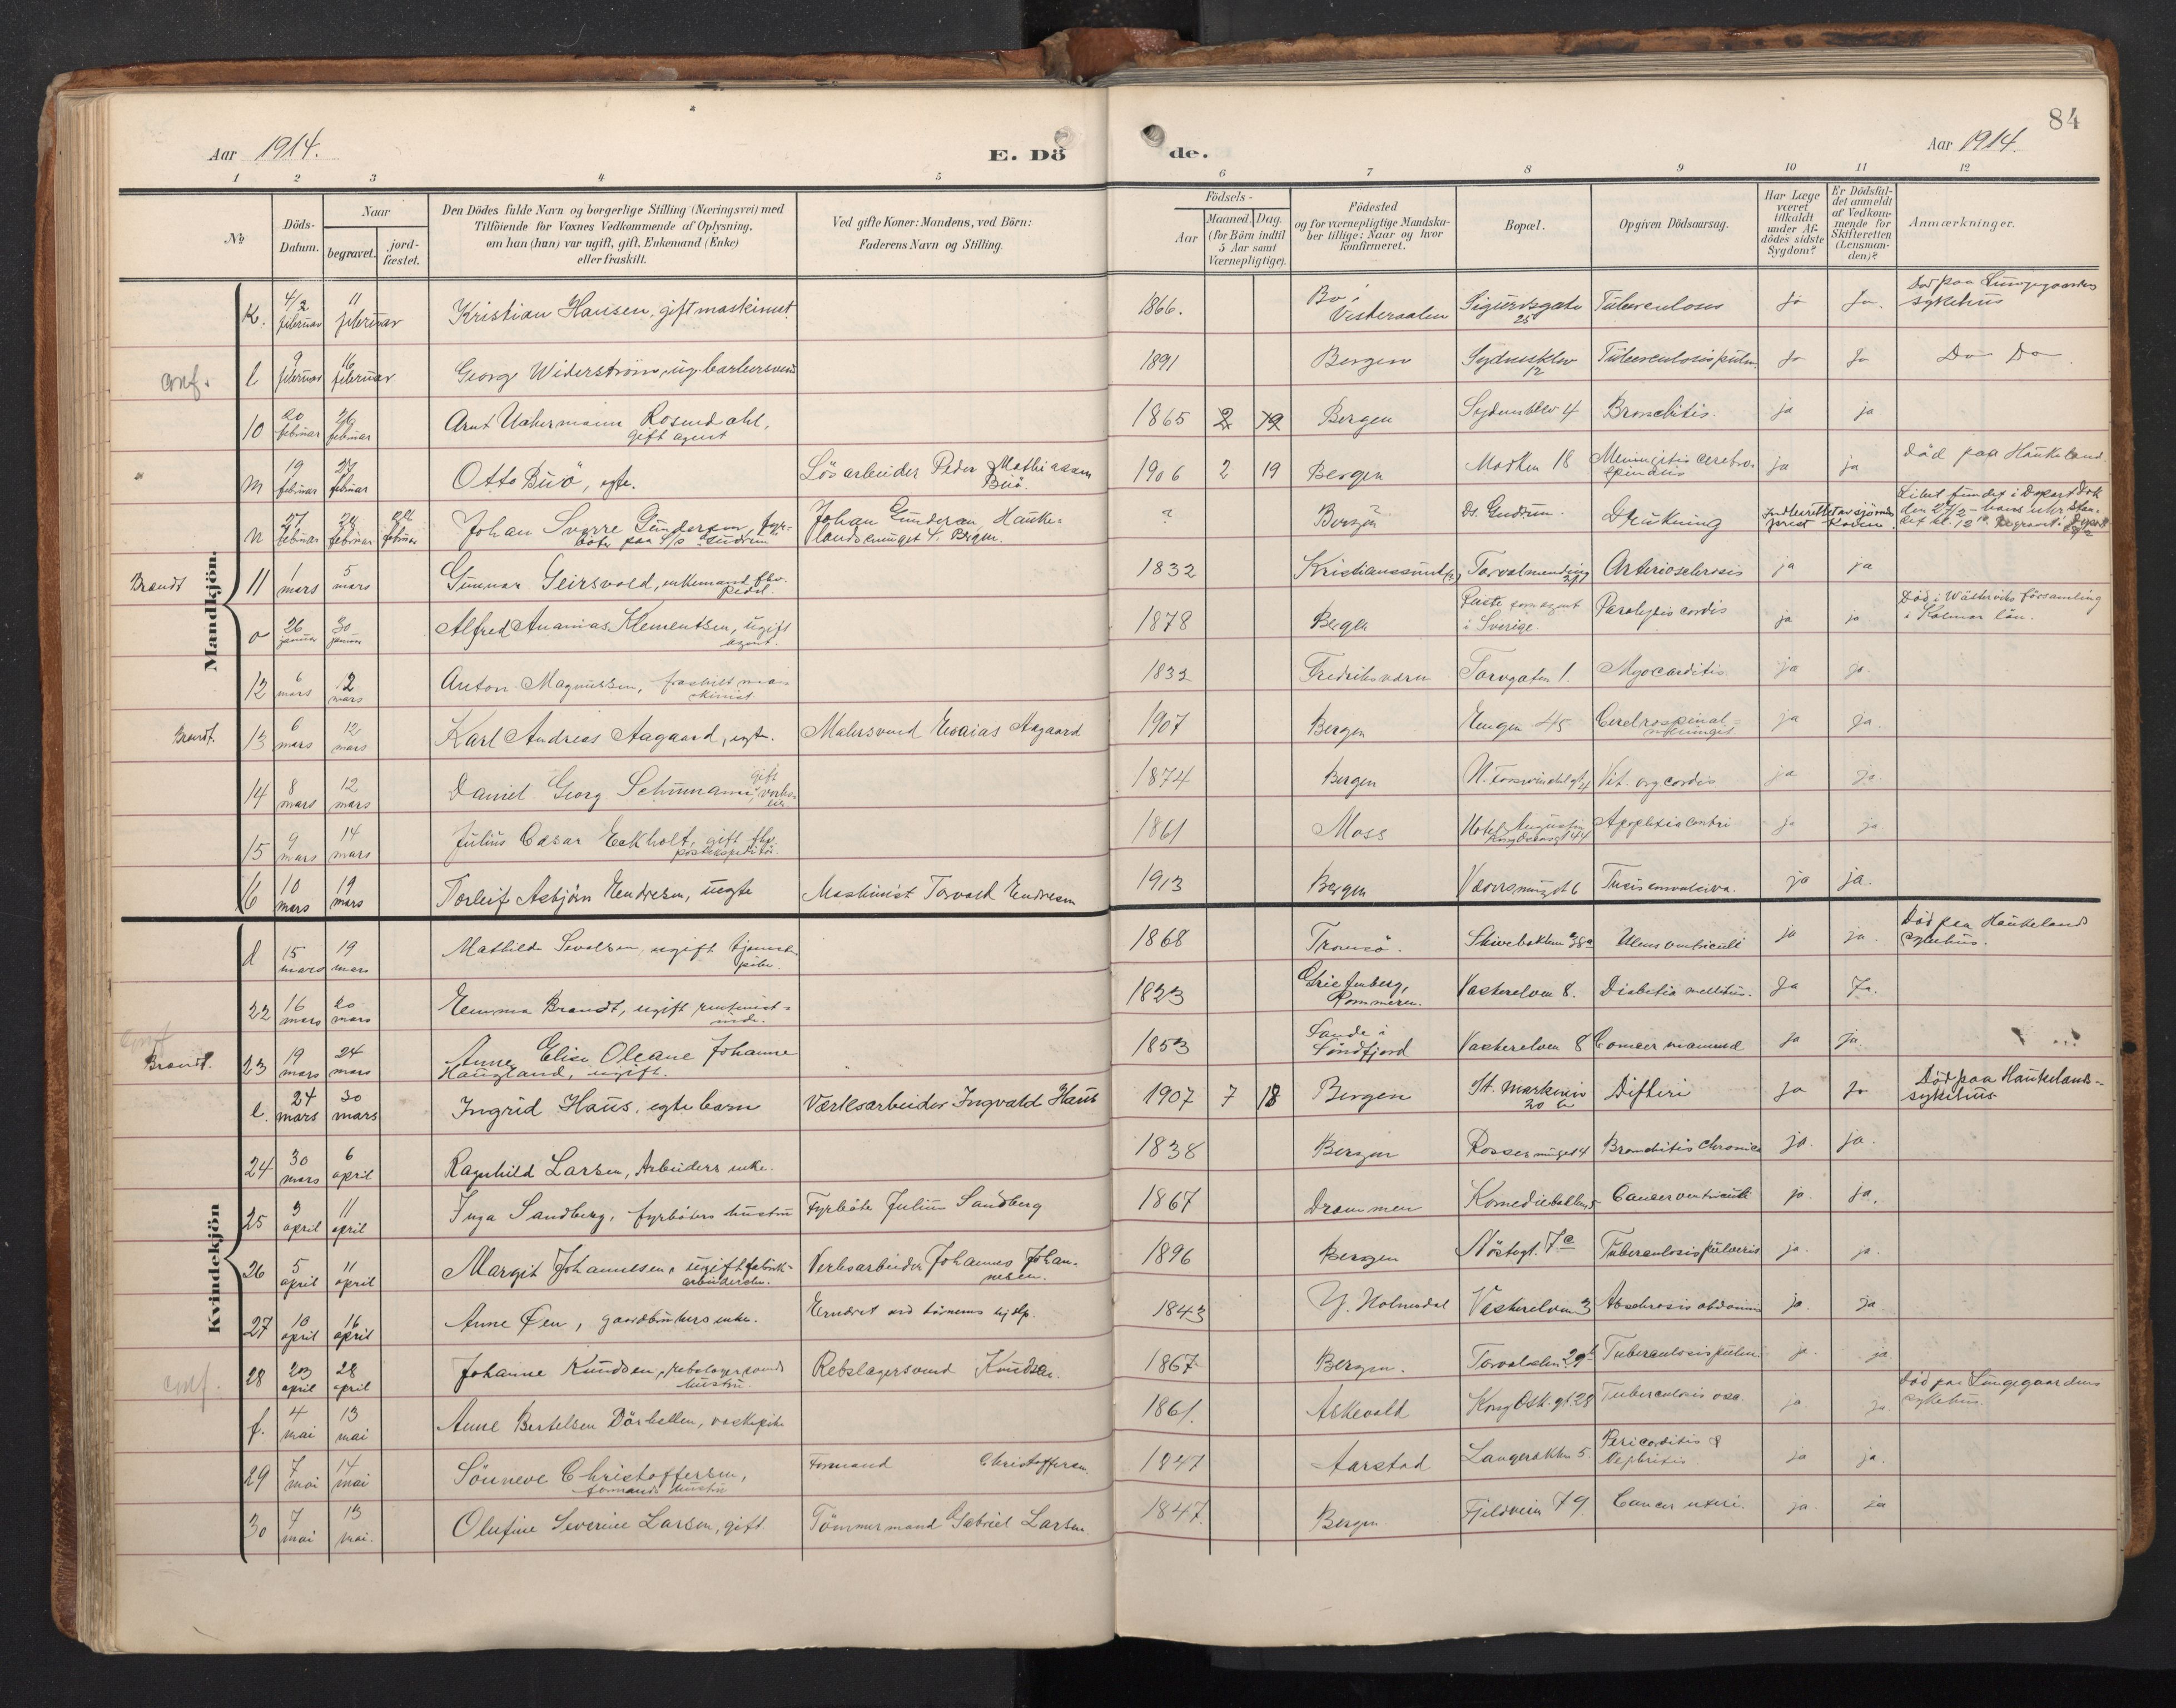 84
Aar 1914.
E. Dö
de.
Aar 1914.
1 2 3 4 5
6 7 8 9 10 11 12
No
Döds-
Datum.
Naar
begravet.
jord-
fæstet.
Den Dödes fulde Navn og borgerlige Stilling (Næringsvei) med
Tilföiende for Voxnes Vedkommende af Oplysning,
om han (hun) var ugift, gift, Enkemand (Enke)
eller fraskilt.
Ved gifte Koner: Mandens, ved Börn:
Faderens Navn og Stilling.
Födsels-
Aar
Maaned.
Dag.
(for Börn indtil
5 Aar samt
Værnepligtige).
Födested
og for værnepligtige Mandska-
ber tillige: Naar og hvor
konfirmeret.
Bopæl.
Opgiven Dödsaarsag.
Har Læge
været
tilkaldt
under Af-
dödes sidste
Sygdom?
Er Dödsfal-
det anmeldt
af Vedkom-
mende for
Skifteretten
(Lensman-
den)?
Anmærkninger.
Mandkjön.
K. 4/2 februar 11 februar Kristian Hansen, gift maskinist. 1866. Bo i Vesteraalen Sigurdsgate 25 Tuberculosis ja ja. Död paa Lungegaardens sykehus
conf. l 9 februar 16 februar George Widerström, ug. barbersvend 1891 Bergen Sydnesklev 12 Tuberculosis pulm. ja ja Do Do
10 20 februar 26 februar Arnt Uchermann Rosendahl, gift agent 1865 2 19 Bergen Sydnesklev 4 Bronchitis. ja ja
m 19 februar 27 februar Otto Buö, egte. Lösarbeider Peder Mathiassen Buö. 1906 2 19 Bergen Marken 18 Meningitis cerebro spinalis ja ja död paa Haukeland
n 27 februar 28 februar februar Johan Sverre Gundersen, fyr-
böter paa S/s Gudrun Johan Gundersen, Hauke-
landsmuget Bergen. ? Bergen? Ds. Gudrun. Drukning
Brandt 11 1 mars 5 mars Gunnar Geirsvold, enkemand fhv. pedel. 1832 Kristianssund Torvalmending Arteriosclerosis ja ja
o 26 januar 30 januar Alfred Ananias Klementsen, ugift agent. 1878 Bergen Reiste som agent i Sverige. Paralysis cordis ja ja Död i Wästerviks församling
i Kalmar län.
12 6 mars 12 mars Anton Magnussen, fraskilt ma-
skinist. 1832 Fredriksværn Torvgaten 1. Myocarditis ja ja.
Brandt. 13 6 mars 12 mars Karl Andreas Aagaard, egte. Malersvend Esaias Aagaard 1907 Bergen Engen 45 Cerebrospinal-
meningit ja ja.
14 8 mars 12 mars Daniel Georg Schumann, gift 1874 Bergen Vit. org. cordis ja ja
15 9 mars 14 mars Julius Cæsar Eckholt, gift fhv. postekspeditör. 1861 Moss Hotel Augustin Apoplexia cerebri ja ja
16 10 mars 19 mars Torleif Asbjörn Endresen, uegte Maskinist Torvald Endresen 1913 Bergen Væversmuget 6 Tussis convulsiva. ja ja.
Kvindekjön
d 15 mars 19 mars Mathilde Sivertsen, ugift tjeneste
pike. 1868 Tromsö. Skivebakken 38a Ulcus ventriculi ja ja. Död paa Haukeland
sykehus.
22 16 mars 20 mars Emma Brandt, ugift rentenist-
inde. 1823 Greifenberg, Pommern. Vaskerelven 8. Diabetis mellitus. ja Ja.
conf
Brandt. 23 19 mars 24 mars Anne Elise Oleane Johanne
Haugland, ugift. 1853 Sande i Söndfjord Vaskerelven 8 Cancer mammæ ja ja.
e. 24 mars 30 mars Ingrid Haus, egte barn Verksarbeider Ingvald Haus 1907 7 18 Bergen St. Markevei 20 b Difteri ja ja Död paa Haukelands-
sykehus.
24 30 mars 6 april Ragnhild Larsen, Arbeiders enke. 1838 Bergen Rossesmuget 4 Bronchitis chronica ja. ja.
25 3 april 11 april Inga Sandberg, fyrböters hustru Fyrböter Julius Sandberg 1867 Drammen Komediebakken 5 Cancer ventriculi ja. ja.
26 5 april 11 april Margit Johannesen, ugift fabrik-
arbeiderske. Verksarbeider Johannes Johan-
nesen. 1896 Bergen Nöstegt. 7c Tuberculosis pulmonis ja. ja.
27 10 april 16 april Anne Öen, gaardbrukers enke. Ernæret ved börnenes hjelp. 1843 Y. Holmedal Vaskerelven 3 ja. ja
conf. 28 23 april 28 april Johanne Knudsen, rebslagersvends
hustru. Rebslagersvend Knudsen. 1867 Bergen. Torvalm 29b Tuberculosis pulm. ja. ja.
f. 4 mai 13 mai Anne Bertelsen Dörhellen, vaskepike 1861. Askevold Kong Osk. gt. 28 Tuberculosis ossa. ja. ja. död paa Lungegaardens
sykehus.
29 7 mai 14 mai Sönneve Christoffersen,
formands hustru Formand Christoffersen. 1847 Aarstad Langerækken 5 Pericarditis &
Nephritis ja ja.
30 7 mai 13 mai. Olufine Severine Larsen, gift. Tömmermand Gabriel Larsen 1847. Bergen Fjeldveien 79. Cancer uteri. ja. ja